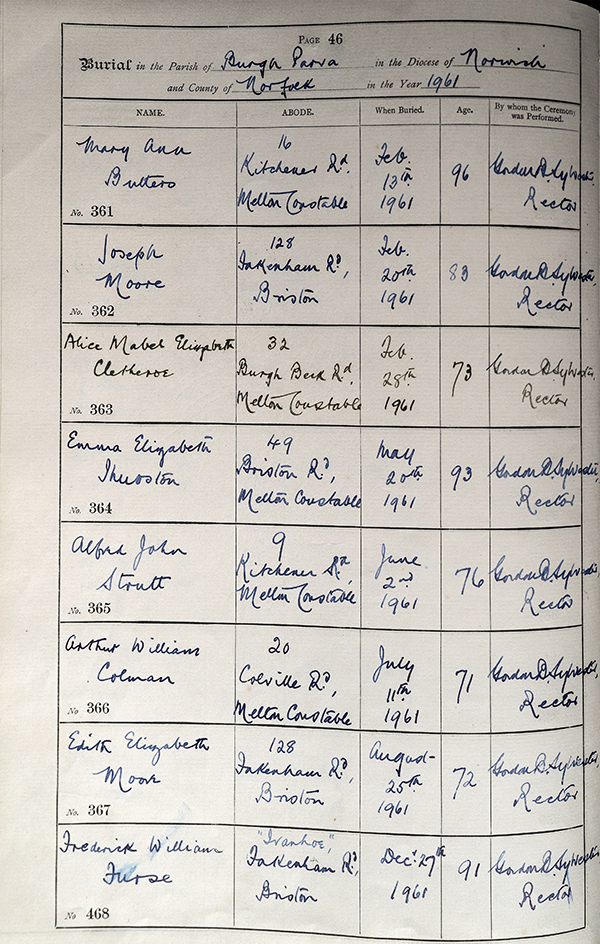 PAGE 46
Burial in the Parish of Burgh Parva in the Diocese of Norwich
and County of Norfolk in the Year 1961
NAME. ABODE. When Buried. Age. By whom the Ceremony was Performed.
Mary Ann
Butters
No. 361
16
Kitchener Rd.
Melton Constable
Feb.
13th
1961
96
Gordon D. Sylvester,
Rector
Joseph
Moore
No. 362
128
Fakenham Rd,
Briston
Feb.
20th
1961
83
Gordon D. Sylvester,
Rector
Alice Mabel Elizabeth
Cletheroe
No. 363
32
Burgh Beck Rd,
Melton Constable
Feb.
28th
1961
73
Gordon D. Sylvester,
Rector
Emma Elizabeth
Thurston
No. 364
49
Briston Rd,
Melton Constable
May
20th
1961
93
Gordon D. Sylvester,
Rector
Alfred John
Strutt
No. 365
9
Kitchener Rd,
Melton Constable
June
2nd
1961
76
Gordon D. Sylvester,
Rector
Arthur William
Colman
No. 366
20
Colville Rd,
Melton Constable
July
11th
1961
71
Gordon D. Sylvester,
Rector
Edith Elizabeth
Moore
No. 367
128
Fakenham Rd,
Briston
August
25th
1961
72
Gordon D. Sylvester,
Rector
Frederick William
Furse
No. 468
"Ivanhoe",
Fakenham Rd,
Briston
Dec. 27th
1961
91
Gordon D. Sylvester,
Rector